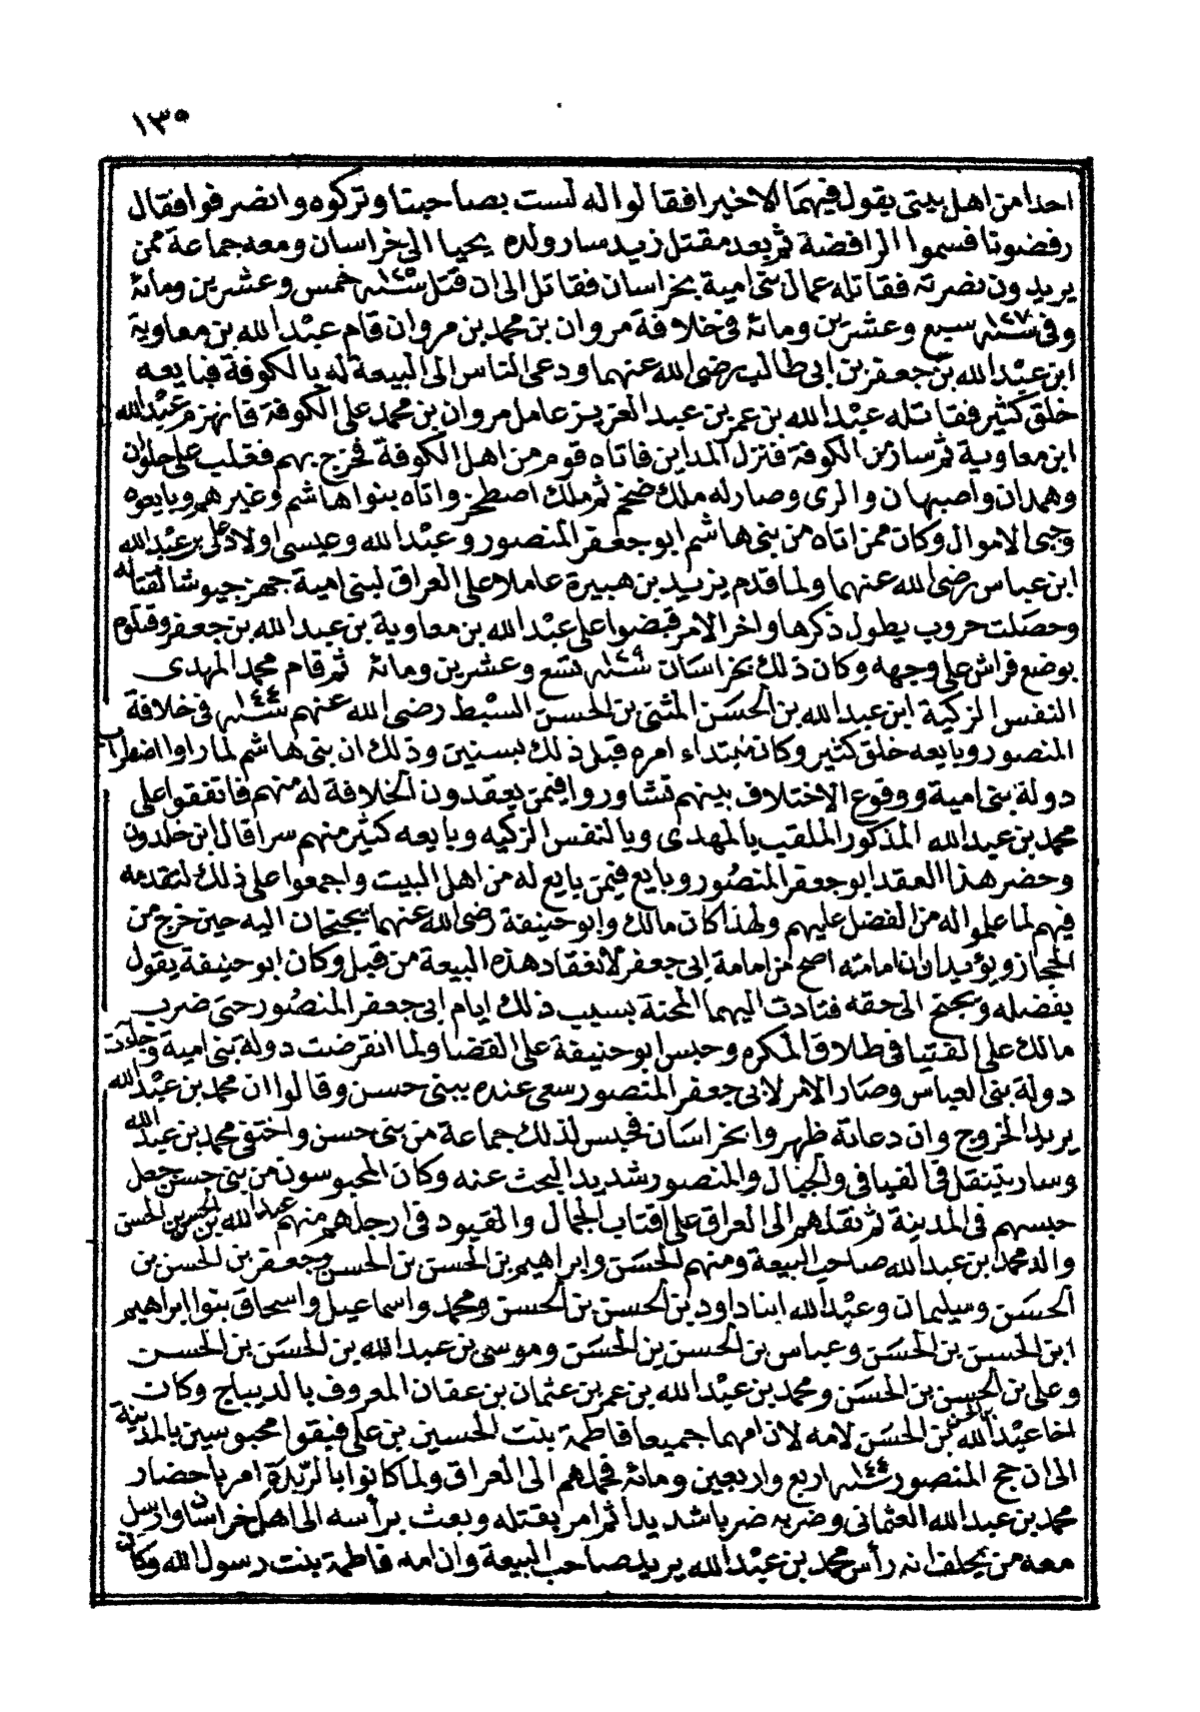 ١٣٥
احدا من اهل بيتي يقول فيهما الا خيرا فقالوا له لست بصاحبنا وتركوه وانصرفوا فقال
رفضونا فسموا الرافضة ثم بعد مقتل زيد سار ولده يحيا الى خراسان ومعه جماعة ممن
يريدون نصرته فقاتله عمال بنى امية بخراسان فقاتل الى ان قتل سنة ١٢٥ خمس وعشرين ومائة
وفى سنة ١٢٧ سبع وعشرين ومائة فى خلافة مروان بن محمد بن مروان قام عبد الله بن معاوية
ابن عبد الله بن جعفر بن ابى طالب رضى الله عنهما ودعى الناس الى البيعة له بالكوفة فبايعه
خلق كثير فقاتله عبد الله بن عمر بن عبد العزيز عامل مروان بن محمد على الكوفة فانهزم عبد الله
ابن معاوية ثم سار من الكوفة فنزل المداين فاتاه قوم من اهل الكوفة فخرج بهم فغلب على حلوان
وهمدان واصبهان والرى وصار له ملك ضخم ثم ملك اصطخر واتاه بنوا هاشم وغيرهم وبايعوه
وجبى الاموال وكان ممن اتاه من بنى هاشم ابو جعفر المنصور وعبد الله وعيسى اولاد على بن عبد الله
ابن عباس رضى الله عنهما ولما قدم يزيد بن هبيرة عاملا على العراق لبنى امية جهز جيوشا لقتاله
وحصلت حروب يطول ذكرها واخر الامر قبضوا على عبد الله بن معاوية بن عبد الله بن جعفر وقتلوه
بوضع فراش على وجهه وكان ذلك بخراسان سنة ١٢٩ تسع وعشرين ومائة ثم قام محمد المهدى
النفس الزكية ابن عبد الله بن الحسن المثنى بن الحسن السبط رضى الله عنهم سنة ١٤٤ فى خلافة
المنصور وبايعه خلق كثير وكان مبتداء امره قبل ذلك بسنين وذلك ان بنى هاشم لما راوا اضطراب
دولة بنى امية ووقوع الاختلاف بينهم تشاوروا فيمن يعقدون الخلافة له منهم فاتفقوا على
محمد بن عبد الله المذكور الملقب بالمهدى وبالنفس الزكيه وبايعه كثير منهم سرا قال ابن خلدون
وحضر هذا العقد ابو جعفر المنصور وبايع فيمن بايع له من اهل البيت واجمعوا على ذلك لتقدمه
فيهم لما علموا له من الفضل عليهم ولهذا كان مالك وابو حنيفة رضى الله عنهما يجنحان اليه حين خرج من
الحجاز ويؤيدان ان امامته اصح من امامة ابى جعفر لانعقاد هذه البيعة من قبل وكان ابو حنيفة يقول
بفضله ويجنح الى حقه فتادت اليهما المحنة بسبب ذلك ايام ابى جعفر المنصور حتى ضرب
مالك على الفتيا فى طلاق المكره وحبس ابو حنيفة على القضا ولما انقرضت دولة بنى امية وجاءت
دولة بنى العباس وصار الامر لابى جعفر المنصور سعى عنده ببنى حسن وقالوا ان محمد بن عبد الله
يريد الخروج وان دعاته ظهروا بخراسان فحبس لذلك جماعة من بنى حسن واختفى محمد بن عبد الله
وسار يتنقل فى الفيافى والجبال والمنصور شديد البحث عنه وكان المحبوسون من بنى حسن جعل
حبسهم فى المدينة ثم نقلهم الى العراق على اقتاب الجمال والقيود فى ارجلهم منهم عبد الله بن الحسن بن الحسن
والد محمد ابن عبد الله صاحب البيعة ومنهم الحسن وابراهيم بن الحسن بن الحسن وجعفر بن الحسن بن
الحسن وسليمان وعبد الله ابنا داود بن الحسن بن الحسن ومحمد واسماعيل واسحاق بنوا ابراهيم
ابن الحسن بن الحسن وعباس بن الحسن بن الحسن وموسى بن عبد الله بن الحسن بن الحسن
وعلى بن الحسن بن الحسن ومحمد بن عبد الله بن عمر بن عثمان بن عفان المعروف بالديباج وكان
اخا عبد الله بن الحسن بن الحسن لامه لان امهما جميعا فاطمة بنت الحسين بن على فبقوا محبوسين بالمدينة
الى ان حج المنصور سنة ١٤٤ اربع واربعين ومائة فحملهم الى العراق ولما كانوا بالربذة امر باحضار
محمد بن عبد الله العثمانى وضربه ضربا شديدا ثم امر بقتله وبعث برأسه الى اهل خراسان وارسل
معه من يحلف انه رأس محمد بن عبد الله يريد صاحب البيعة وان امه فاطمة بنت رسول الله وكان